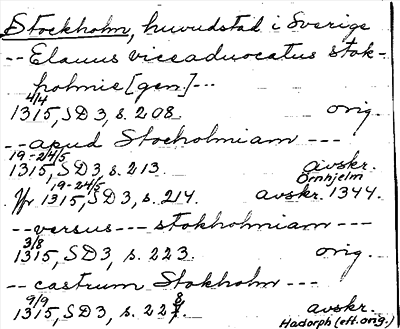 Stockholm, huvudstad i Sverige
-- Elauus viceaduocatus stok-
holmie [gen] ---
4/4
1315, SD3, s. 208. orig.
-- apud Stocholmiam ---
19-24/5
1315, SD3, s. 213. avskr.
Örnhjelm
19-24/5
Jfr 1315, SD3, s. 214. avskr. 1344.
-- versus --- stokholmiam ---
3/8
1315, SD3, s. 223. orig.
-- castrum Stokholm ---
9/9
1315, SD3, s. 228. avskr.
Hadorph (eft. orig.)